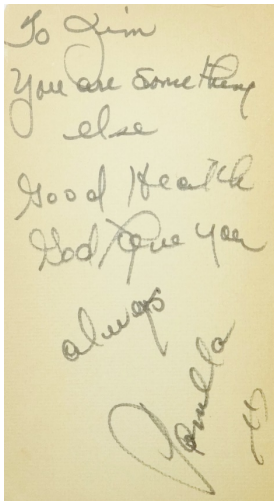 To Jim
You are something
else
Good Health
God love you
always
Camilla